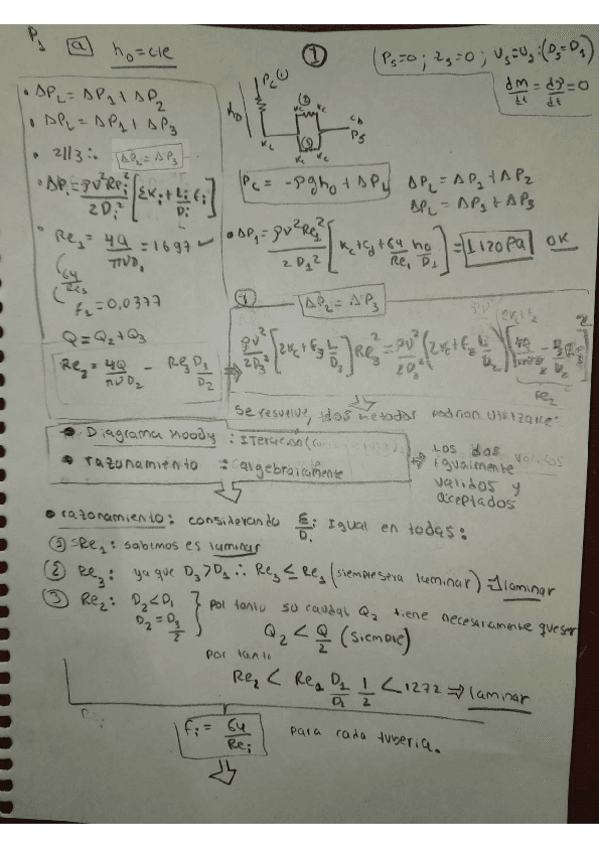 P3 a h₀=cte
1
(P5=0 ; z5=0 ; v5=v3 :(D5=D3)
dm/dt = dρ/dt = 0
• ΔP_L = ΔP1 + ΔP2
• ΔP_L = ΔP1 + ΔP3
• 2//3 ∴ ΔP2 = ΔP3
• ΔPi = ρν²Rei²/2Di² [ΣKi + Li/Di fi]
• Re1 = 4Q/πνD1 = 1697 ✓
64/Re1
f1 = 0,0377
Q = Q2 + Q3
Re2 = 4Q/πνD2 - Re3 D3/D2
h₀
Pc = -ρgh₀ + ΔP_L
ΔP_L = ΔP1 + ΔP2
ΔP_L = ΔP1 + ΔP3
• ΔP1 = ρν²Re1²/2D1² [Kc + Cd + 64/Re1 h₀/D1] = 1120Pa OK
ΔP2 = ΔP3
ρν²/2D3² [2Kc + f3 L/D3] Re3² = ρν²/2D2² (2Kc + f2 L/D2)
Re2
se resuelve, dos metodos podrían utilizarse:
• Diagrama moody : Iteracion
• razonamiento : algebraicamente
⇒ Los dos
igualmente
validos y
aceptados
• razonamiento: considerando ε/D: Igual en todas:
① Re1: sabemos es luminar
② Re3: ya que D3>D1 ∴ Re3 ≤ Re1 (siempre sera luminar) ⇒ luminar
③ Re2: D2<D1
D2=D1/2
por tanto su caudal Q2 tiene necesariamente que ser
Q2 < Q/2 (siempre)
por tanto
Re2 < Re1 D1/D2 1/2 < 1272 ⇒ laminar
fi = 64/Rei para cada tuberia.